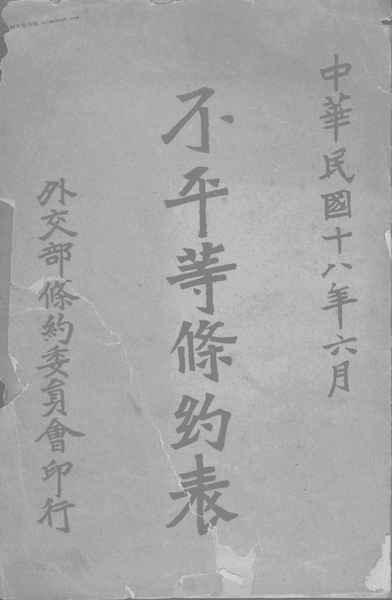 中華民國十八年六月
不平等條約表
外交部條約委員會印行